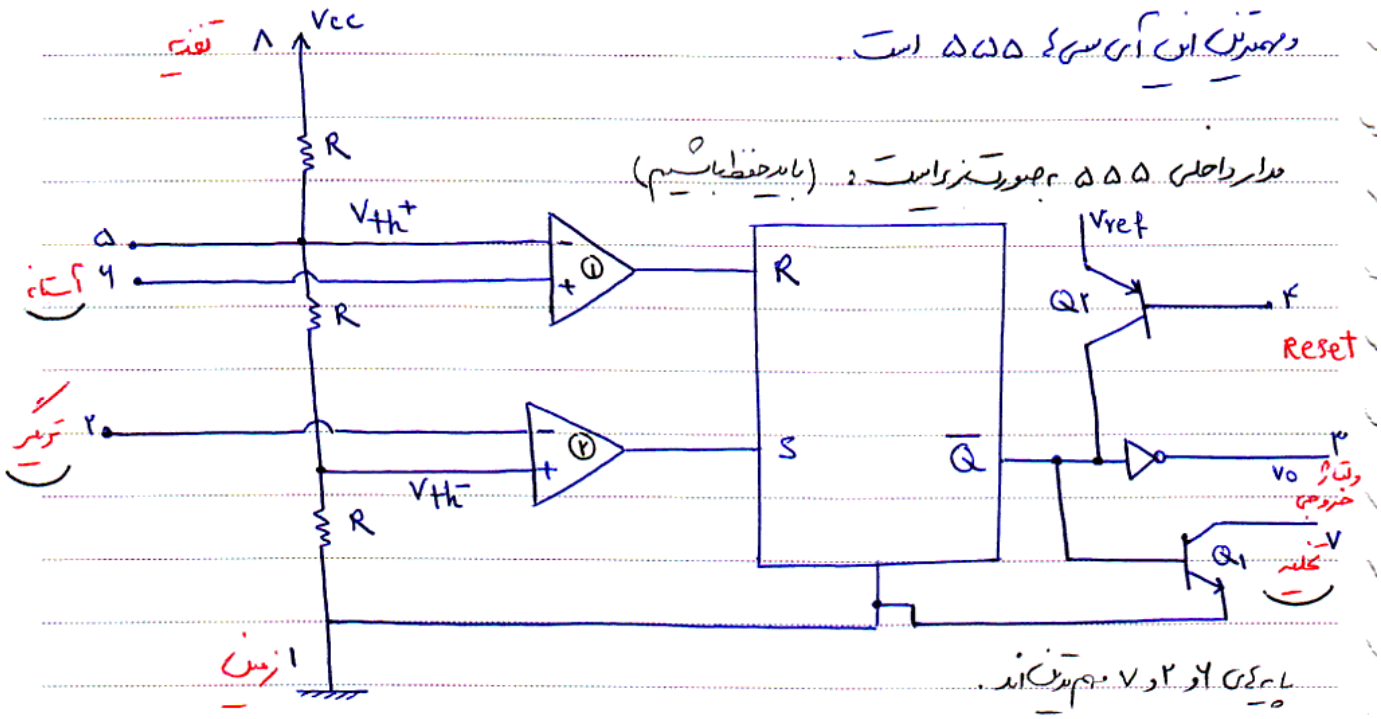 ومهمترین این آی سی ها ۵۵۵ است.
مدار داخلی ۵۵۵ بصورت زیر است : (باید حفظ باشیم)
تغذیه ۸ Vcc
R
Vth+
۵
آستانه ۶
- + ①
R
Vref
Q۲ ۴
Reset
R
تریگر ۲
- + ②
S
Q̅
۳
vo ولتاژ خروجی
Vth-
R
۷
Q۱ تخلیه
۱ زمین
پایه های ۶ و ۲ و ۷ مهم ترین اند.